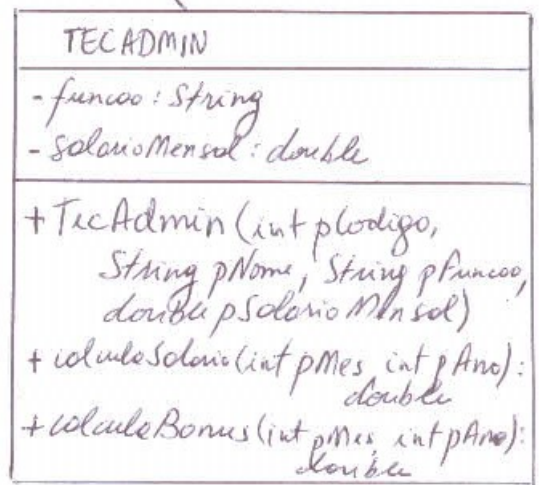 TECADMIN
- funcao: String
- salarioMensal: double
+ TecAdmin (int pCodigo,
String pNome, String pFuncao,
double pSalarioMensal)
+ calculaSalario (int pMes, int pAno):
double
+ calculaBonus (int pMes, int pAno):
double